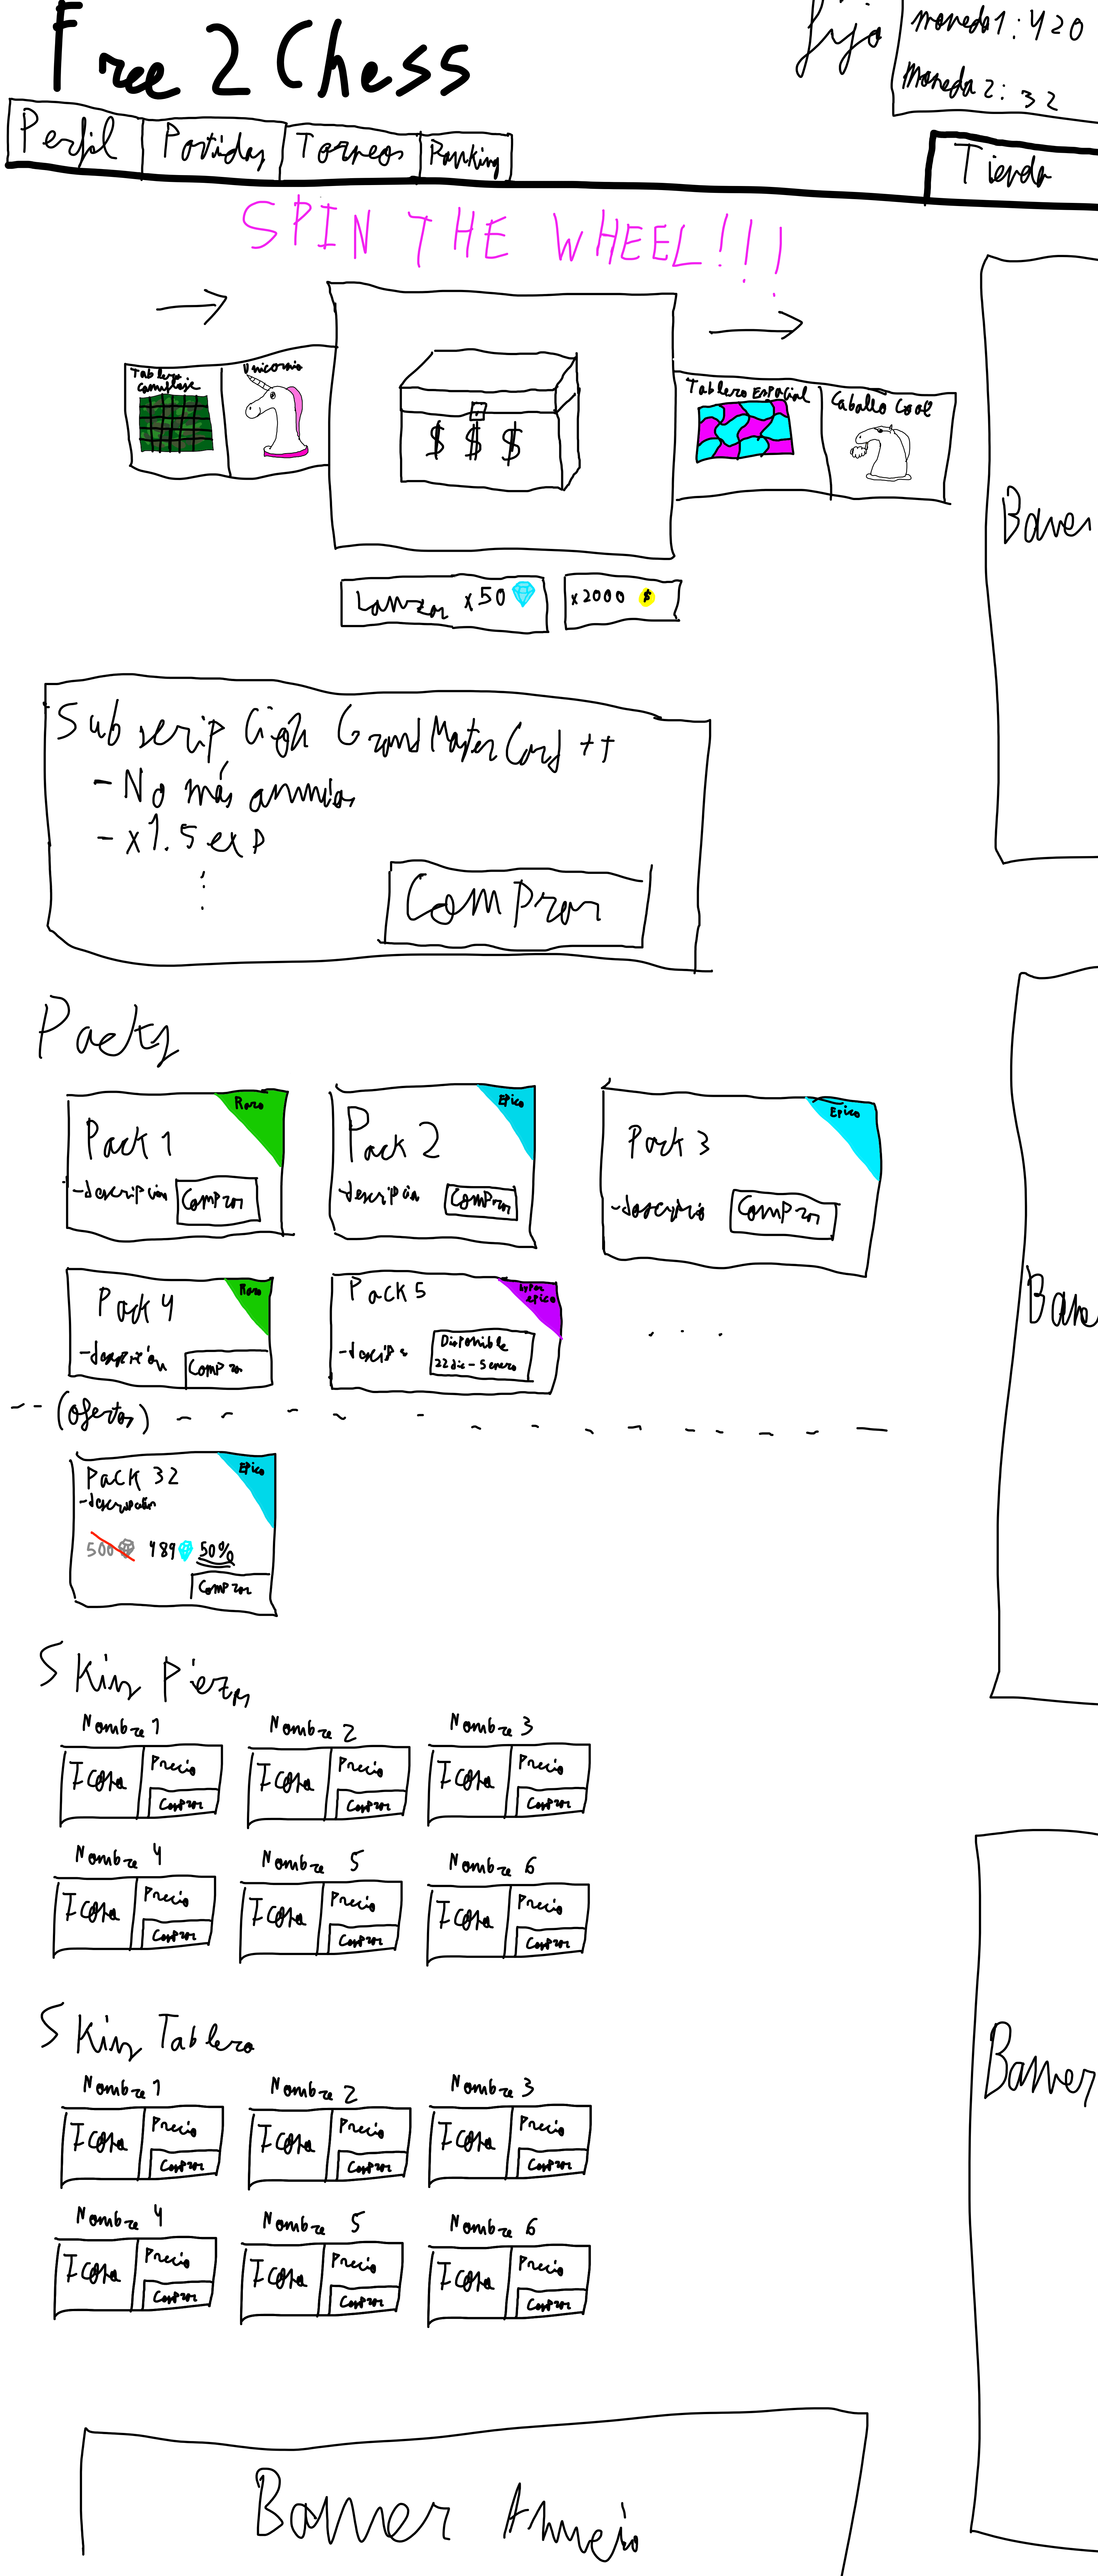 Free 2 Chess
fijo
moneda1: 420
moneda2: 32
Perfil
Partidas
Torneos
Ranking
Tienda
SPIN THE WHEEL!!!
Tablero
Camuflaje
Unicornio
$ $ $
Tablero Espacial
Caballo Cool
Baner
Lanzar x50
x2000 $
Subscripción GrandMasterCard ++
- No más anuncios
- x1.5 exp
Comprar
Packs
Pack 1
Raro
-descripción
Comprar
Pack 2
Epico
-descripción
Comprar
Pack 3
Epico
-descripcio
Comprar
Pack 4
Raro
-descripción
Comprar
Pack 5
epico
Disponible
22 dic - 5 enero
. . .
Bane
(ofertas)
Pack 32
Epico
500 489 50%
Comprar
Skins Piezas
Nombre 1
Icono
Precio
Comprar
Nombre 2
Icono
Precio
Comprar
Nombre 3
Icono
Precio
Comprar
Nombre 4
Icono
Precio
Comprar
Nombre 5
Icono
Precio
Comprar
Nombre 6
Icono
Precio
Comprar
Skins Tablero
Nombre 1
Icono
Precio
Comprar
Nombre 2
Icono
Precio
Comprar
Nombre 3
Icono
Precio
Comprar
Nombre 4
Icono
Precio
Comprar
Nombre 5
Icono
Precio
Comprar
Nombre 6
Icono
Precio
Comprar
Banner
Banner Anuncio